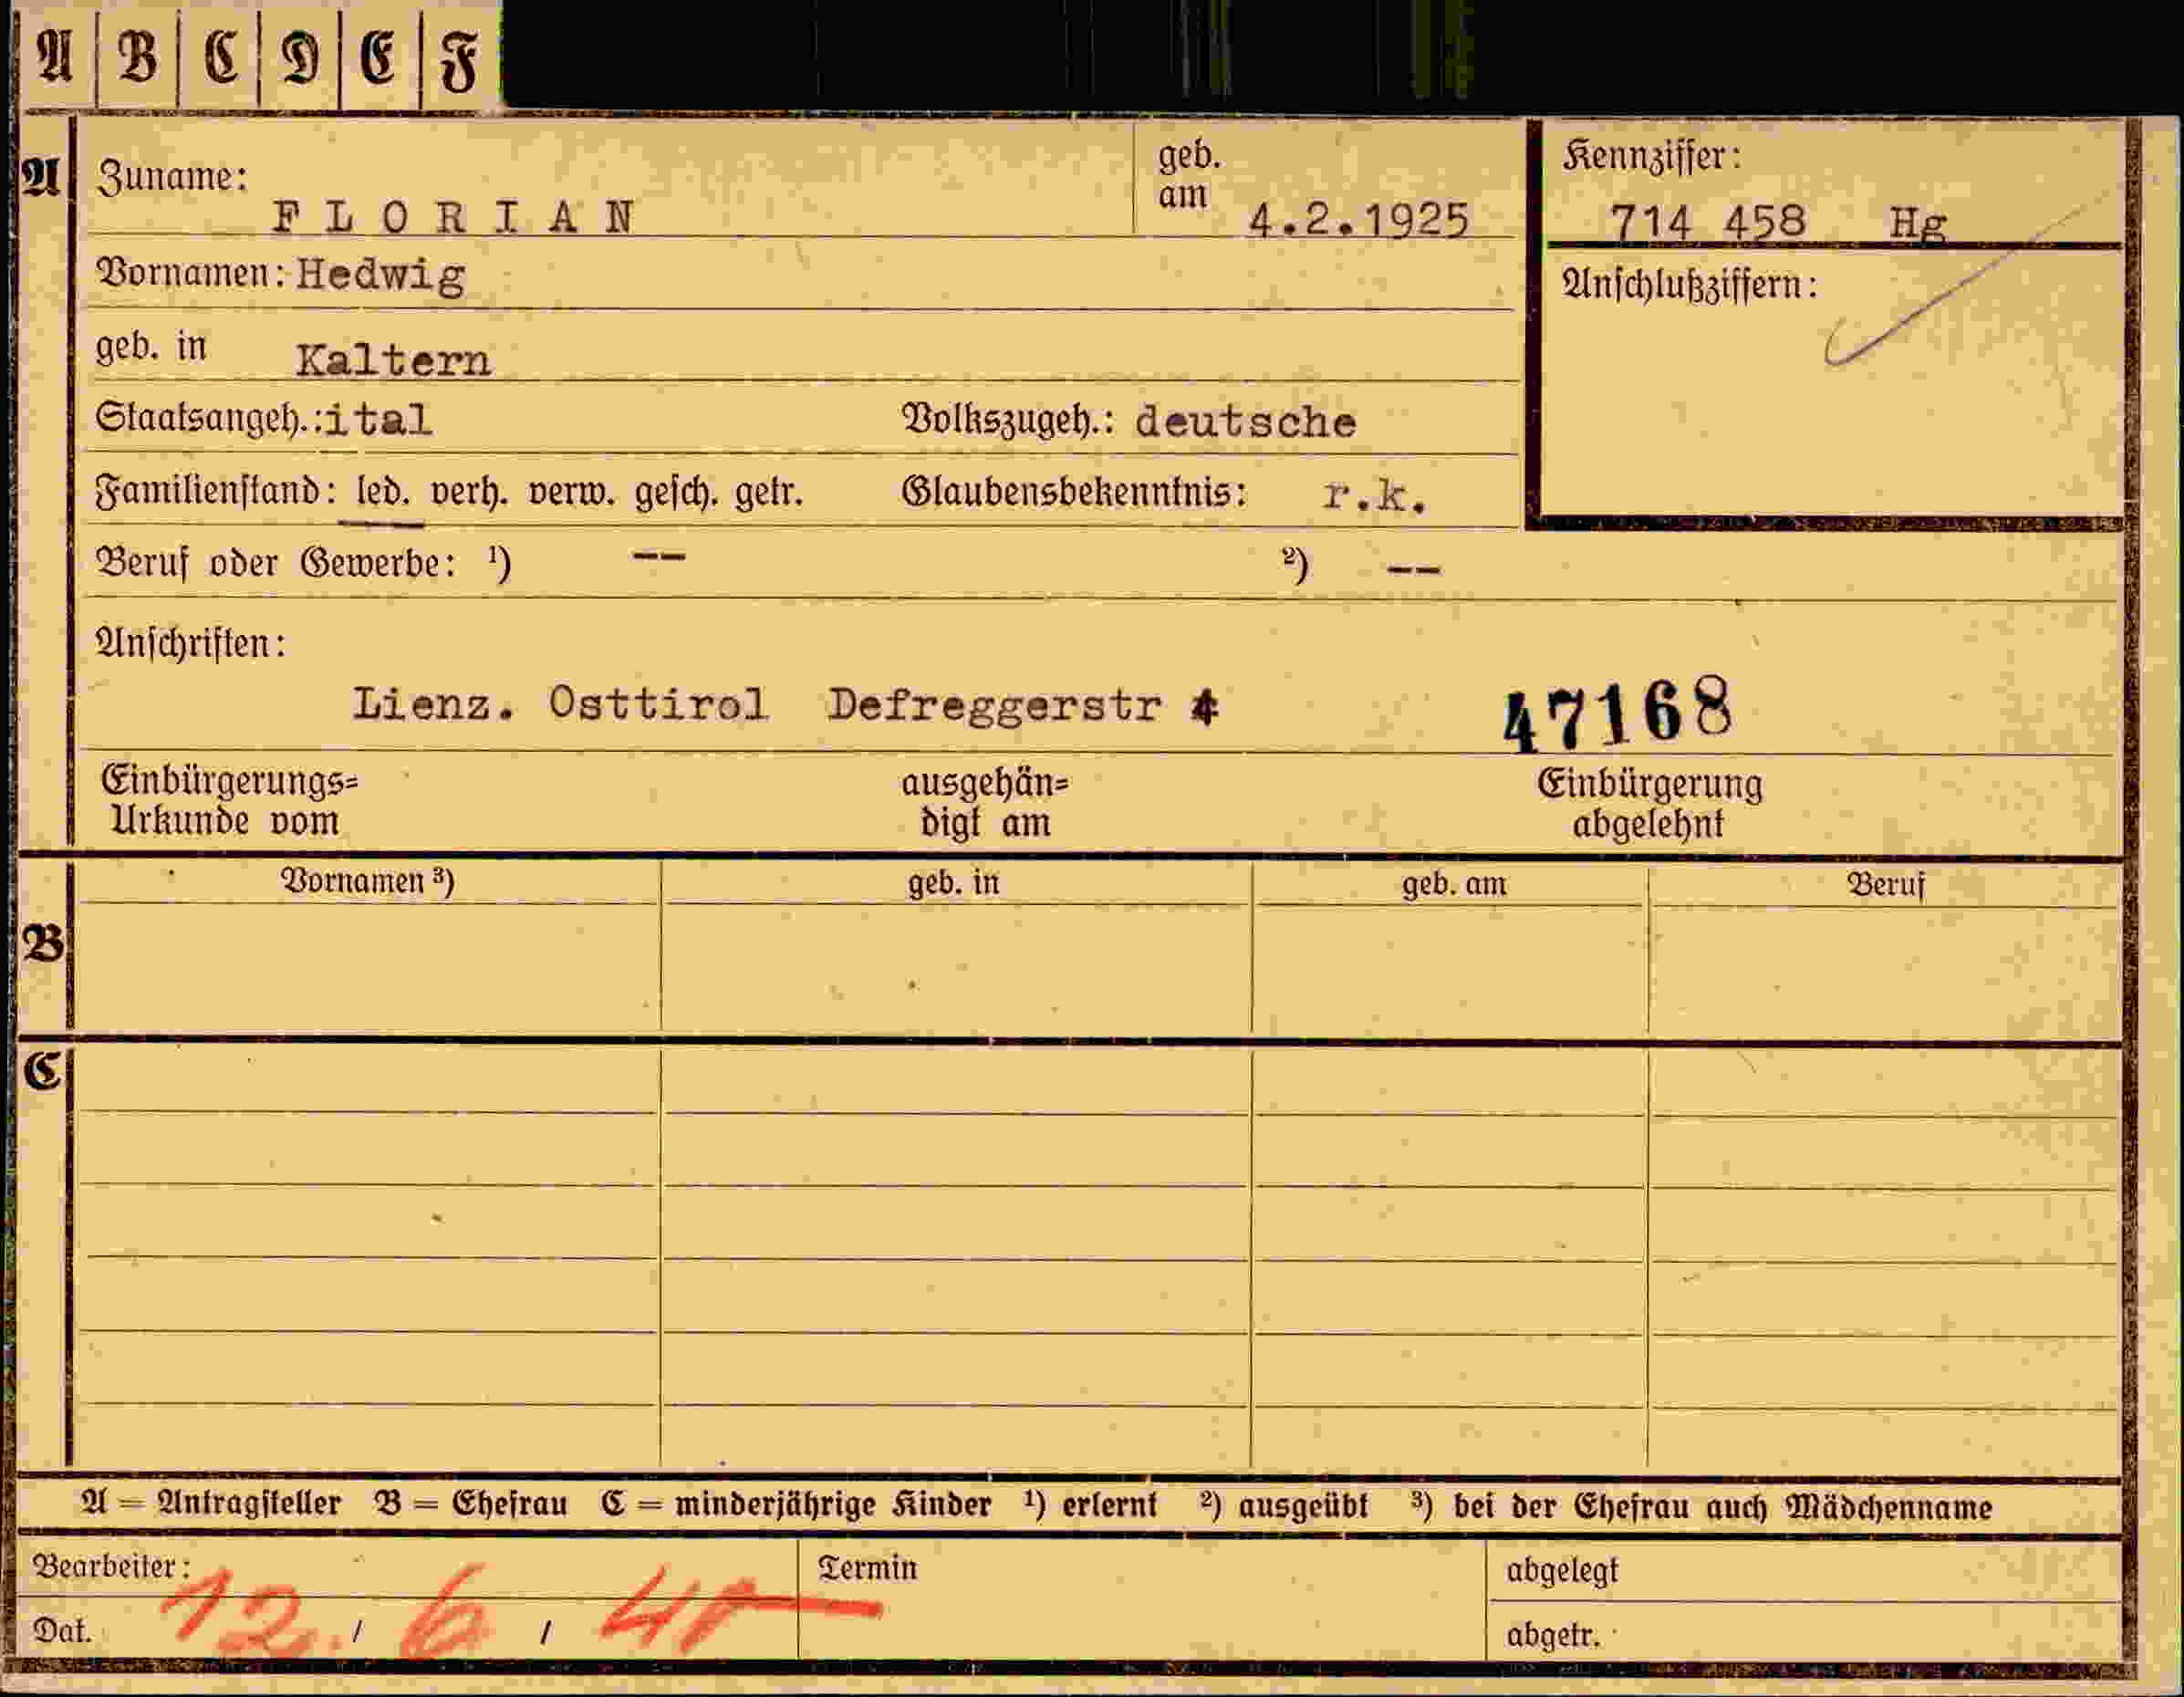 A B C D E F
A
Zuname: FLORIAN
geb. am 4.2.1925
Kennziffer: 714 458 Hg
Vornamen: Hedwig
Anschlußziffern:
geb. in Kaltern
Staatsangeh.: ital Volkszugeh.: deutsche
Familienstand: led. verh. verw. gesch. getr. Glaubensbekenntnis: r.k.
Beruf oder Gewerbe: ¹) -- ²) --
Anschriften:
Lienz. Osttirol Defreggerstr 4 47168
Einbürgerungs=
Urkunde vom
ausgehän=
digt am
Einbürgerung
abgelehnt
B
Vornamen ³) geb. in geb. am Beruf
C
A = Antragsteller B = Ehefrau C = minderjährige Kinder ¹) erlernt ²) ausgeübt ³) bei der Ehefrau auch Mädchenname
Bearbeiter: Termin abgelegt
Dat. 12. / 6 / abgetr.